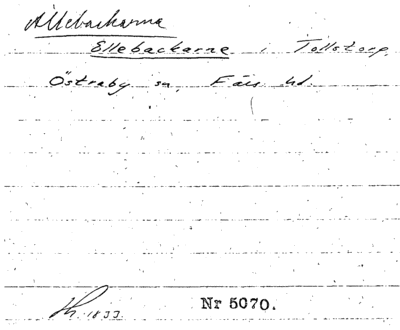 Ällebackarna
Ellebackarne i Tollstorp,
Östraby sn, Färs hd.
1833
Nr 5070.